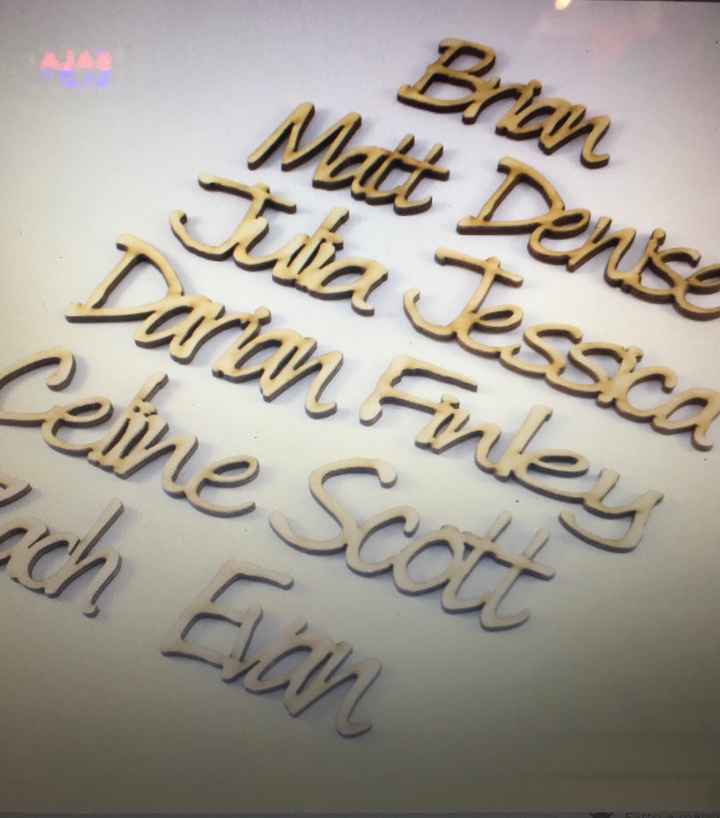 Brian
Matt Denise
Julia Jessica
Darian Finley
Celine Scott
Zach Evan